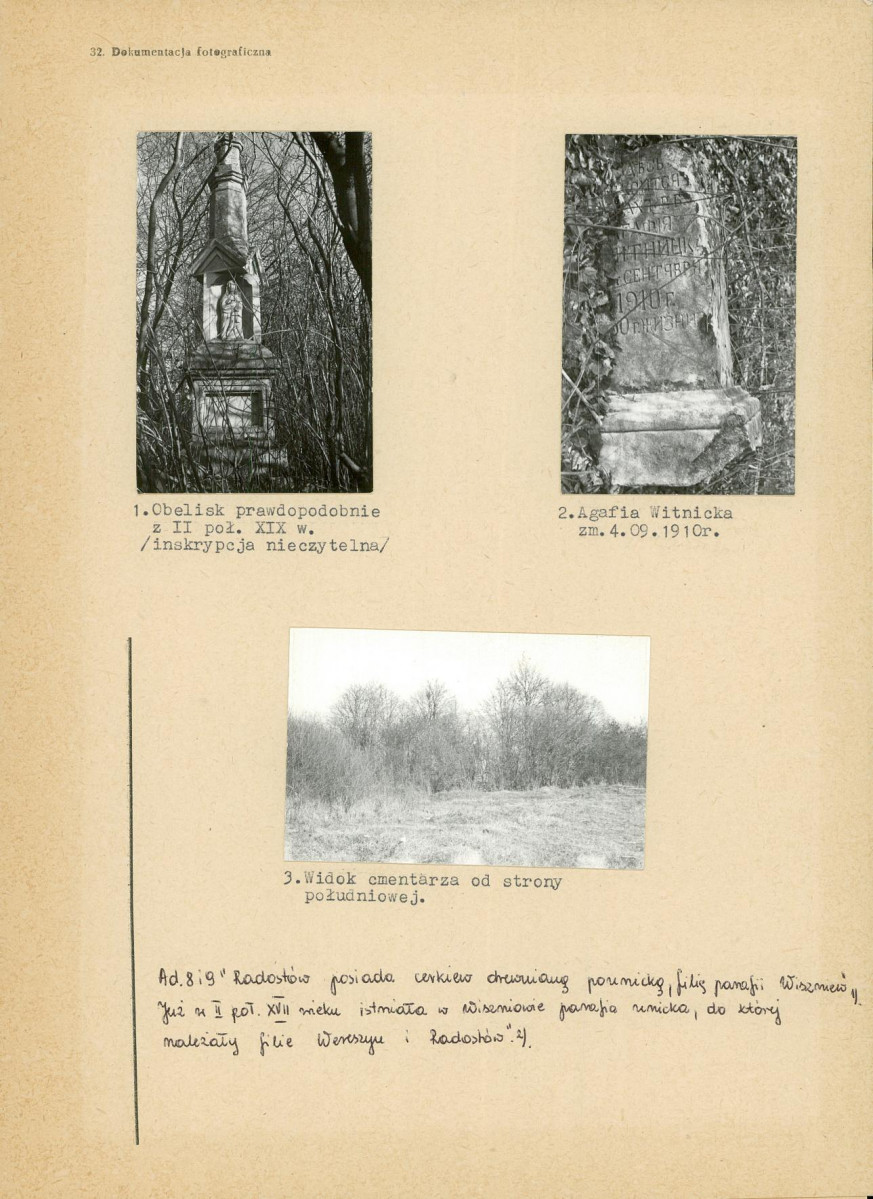 32. Dokumentacja fotograficzna
СЕНТЯБРЯ
1910 г.
1.Obelisk prawdopodobnie
z II poł. XIX w.
/inskrypcja nieczytelna/
2.Agafia Witnicka
zm.4.09.1910r.
3.Widok cmentarza od strony
południowej.
Ad. 8 i 9 "Radostów posiada cerkiew drewnianą pounicką, filię parafii Wiszniów" 1).
Już w II poł. XVII wieku istniała w Wiszniowie parafia unicka, do której
należały filie Wereszyn i Radostów". 2).